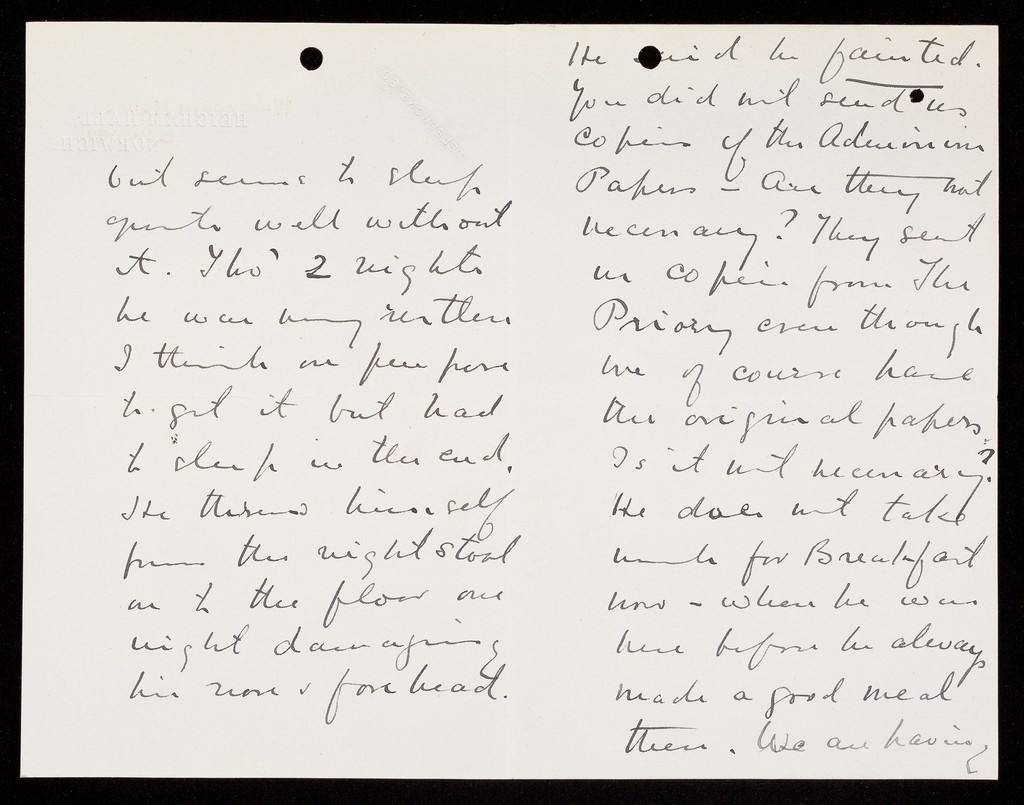 but seems to sleep
quite well without
it. Tho' 2 nights
he was very restless
I think on purpose
to get it but had
to sleep in the end.
He throws himself
from the night stool
on to the floor one
night damaging
his nose & forehead.
He said he fainted.
You did not send us
copies of the Admission
Papers – Are they not
necessary? They sent
us copies from The
Priory even though
we of course have
the original papers.
Is it not necessary?
He does not take
much for Breakfast
now – when he was
here before he always
made a good meal
then. We are having